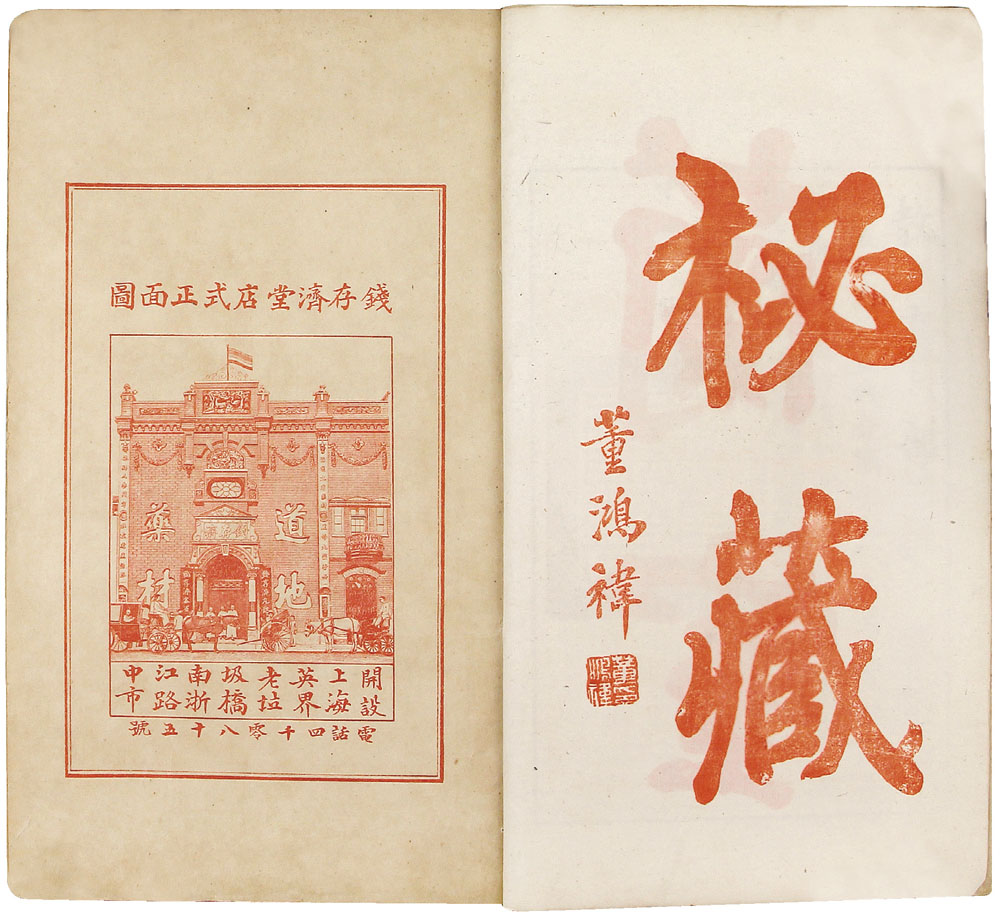 祕藏
董鴻禕
錢存濟堂店式正面圖
道地
藥材
開設
上海
英界
老垃
圾橋
南浙
江路
中市
電話四千零八十五號